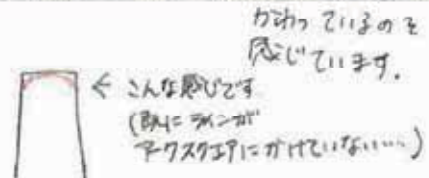 かわっているのを
感じています。
← こんな感じです
(既にラインが
アークスクエアにかけていない…)